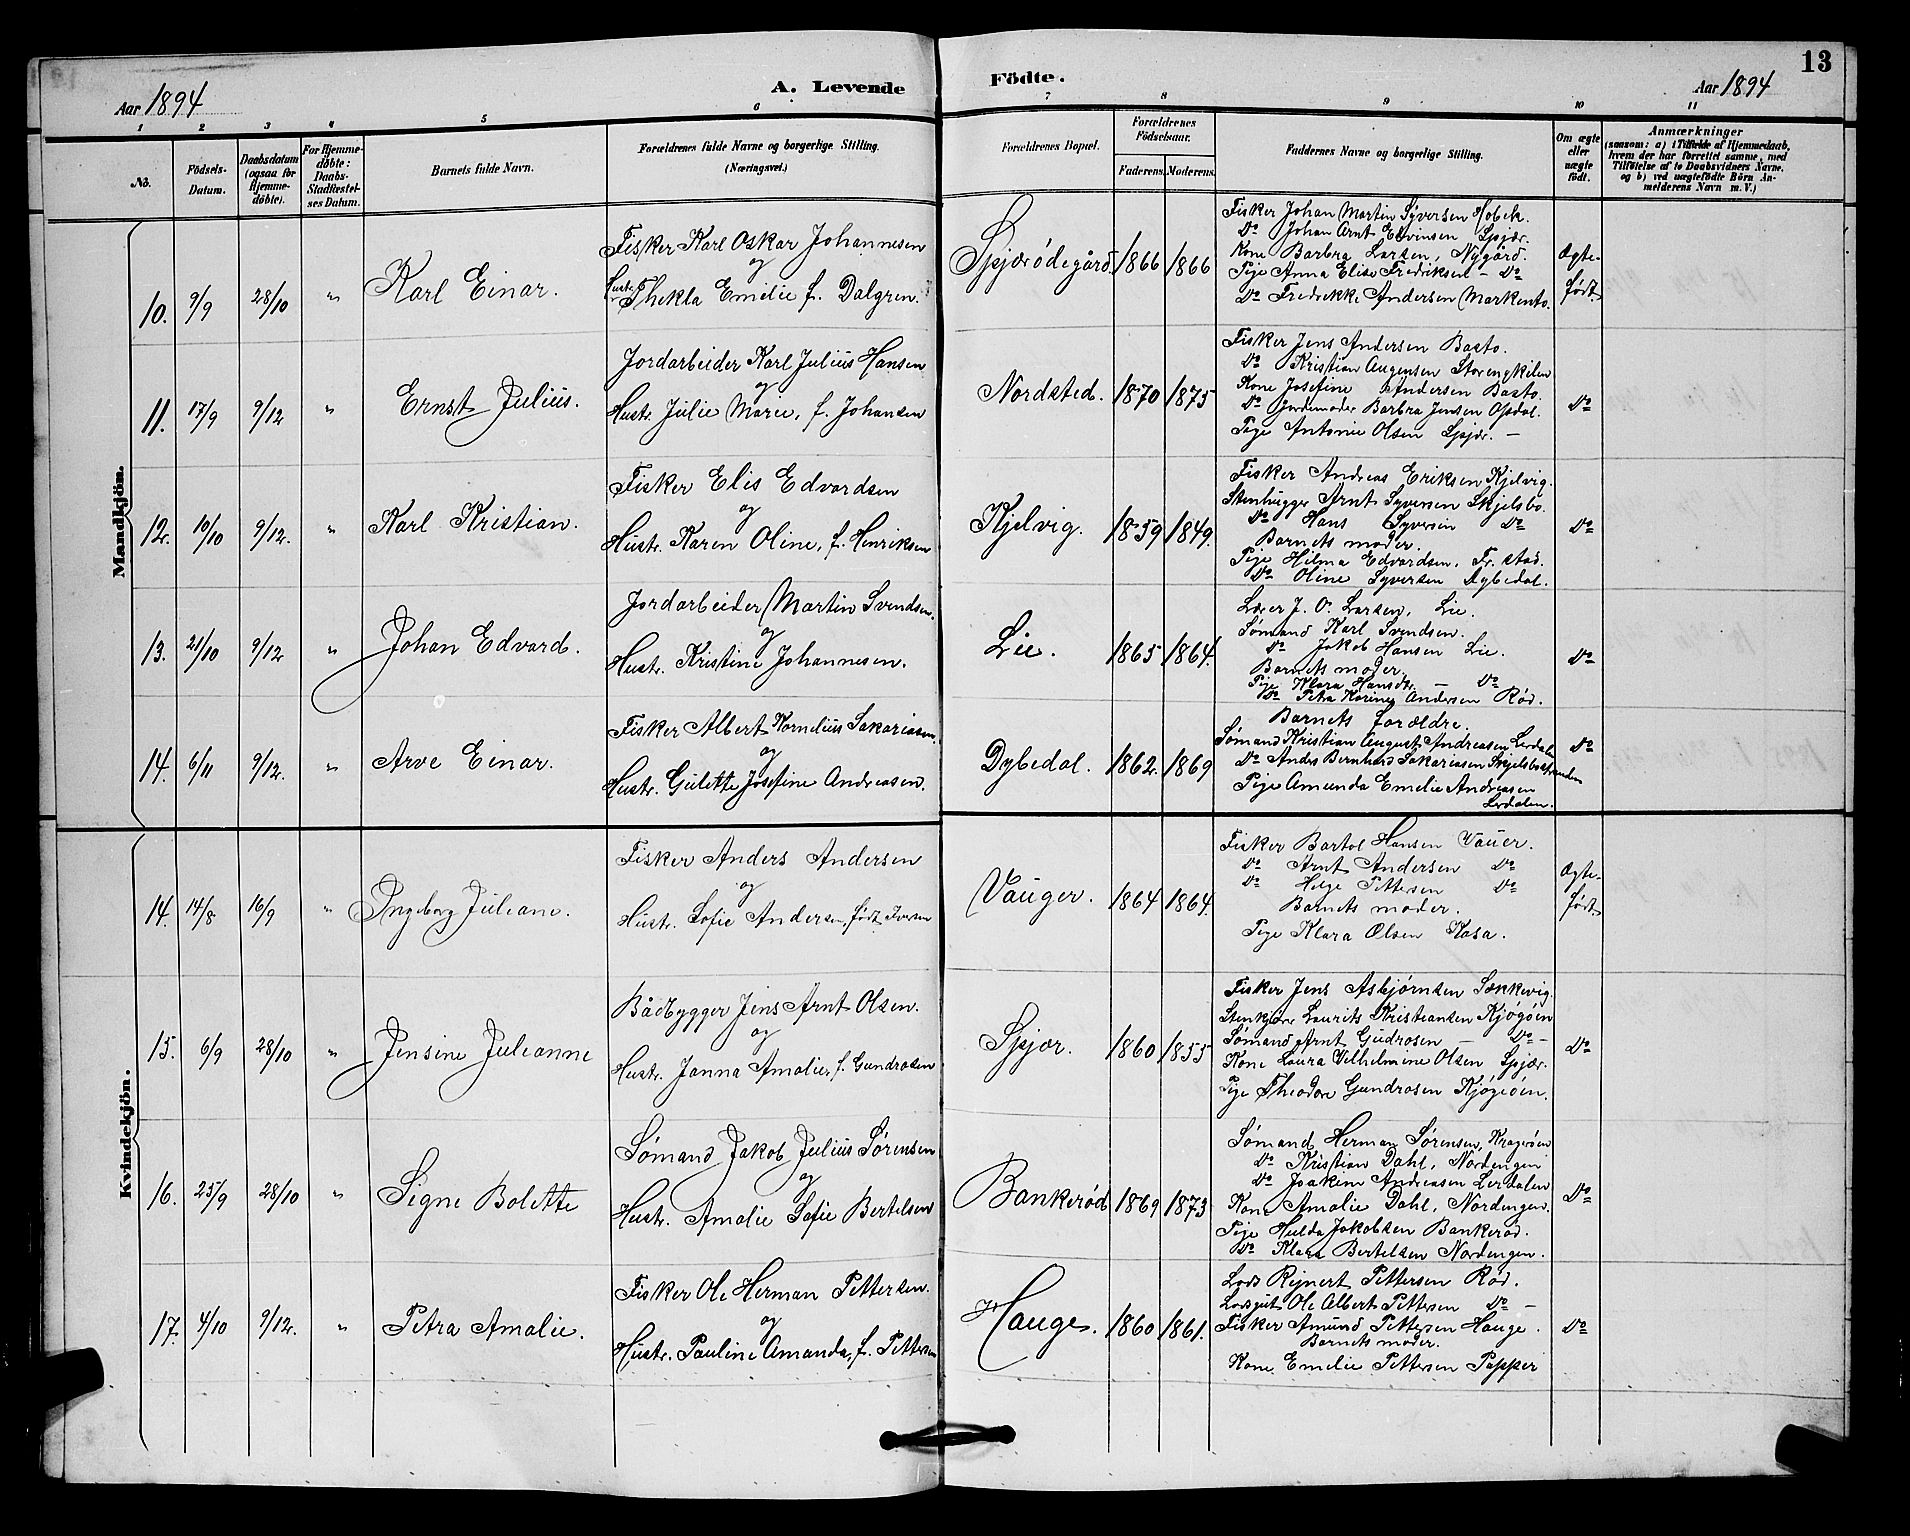 13
Aar 1894
A. Levende Födte.
Aar 1894
1 2 3 4 5 6 7 8 9 10 11
No.
Födsels-Datum.
Daabsdatum (ogsaa for Hjemme-döbte).
For Hjemme-döbte: Daabs-Stadfæstel-ses Datum.
Barnets fulde Navn.
Forældrenes fulde Navne og borgerlige Stilling.
(Næringsvei.)
Forældrenes Bopæl.
Forældrenes Födselsaar.
Faderens. Moderens.
Faddernes Navne og borgerlige Stilling.
Om ægte eller uægte födt.
Anmærkninger
(saasom: a) i Tilfælde af Hjemmedaab,
hvem der har forrettet samme, med
Tilföielse af to Daabsvidners Navne,
og b) ved uægtefödte Börn An-
melderens Navn m. V.)
Mandkjön.
10. 9/9 28/10 " Karl Einar.
Fisker Karl Oskar Johannesen
og
Hustr. Thekla Emilie f. Dalgren.
Spjærødegård 1866 1866
Fisker Johan Martin Syversen Hobek.
Do Johan Arnt Edvinsen Spjær.
Kone Barbra Larsen, Nygård.
Pige Anna Elise Fredriksen - Do
Do Fredrekke Andersen Markento.
Ægte-født.
11. 17/9 9/12 " Ernst Julius.
Jordarbeider Karl Julius Hansen
og
Hustr. Julie Marie, f. Johansen
Nordsted. 1870 1875
Fisker Jens Andersen Basto.
Do Kristian Augensen Storengkilen
Kone Josefine Andersen Basto.
Do Jordemoder Barbra Jensen Opdal.
Pige Antonie Olsen Spjær. -
Do
12. 10/10 9/12. " Karl Kristian.
Fisker Elis Edvardsen
og
Hustr. Karen Oline, f. Henriksen
Kjelvig. 1859 1849.
Fisker Andreas Eriksen Kjelvig.
Stenhugger Arnt Syversen Skjelsbo.
Do Hans Syversen Do
Barnets moder.
Pige Hilma Edvardsen, Fr. stad.
Do Oline Syversen Dybedal.
Do
13. 21/10 9/12 " Johan Edvard.
Jordarbeider Martin Svendsen.
og
Hustr. Kristine Johannesen.
Lie. 1865 1864.
Lærer J. O. Larsen, Lie.
Sømand Karl Svendsen.
Do Jakob Hansen Lie.
Barnets moder.
Pige Klara Hansdtr. - Do
Do Petra Karine Andersen Rød.
Do
14. 6/11 9/12. " Arve Einar.
Fisker Albert Kornelius Sakariasen.
og
Hustr. Gulette Josefine Andreasen.
Dybedal. 1862. 1869
Barnets forældre.
Sømand Kristian August Andreasen Lerdalen
Do Anders Bernhard Sakariasen Skjelsbostranden
Pige Amunda Emelie Andreasen
Lerdalen.
Do
Kvindekjön.
14. 14/8 16/9 " Ingeborg Juliane.
Fisker Anders Andersen
og
Hustr. Sofie Andersen, født Iversen
Vauger. 1864 1864.
Fisker Bartol Hansen Vauer.
Do Arnt Andersen Do
Do Helge Pettersen Do
Barnets moder.
Pige Klara Olsen Kasa.
Ægte-født.
15. 6/9 28/10 " Jensine Julianne
Bådbygger Jens Arnt Olsen.
og
Hustr. Janna Amalie, f. Gundrosen
Spjær. 1860 1855
Fisker Jens Asbjørnsen Sækkevig.
Laurits Kristiansen Kjøgøen
Sømand Arnt Gudrosen - Do -
Kone Laura Vilhelmine Olsen Spjær.
Pige Theodore Gundrosen Kjøgøen.
Do
16. 25/9 28/10 " Signe Bolette
Sømand Jakob Julius Sørensen
og
Hustr. Amalie Sofie Bertelsen
Bankerød 1869 1873
Sømand Herman Sørensen, Kragerøen
Do Kristian Dahl, Nordengen
Do Joakim Andreasen Lerdalen
Kone Amalie Dahl, Nordengen.
Pige Hulda Jakobsen Bankerød.
Do Klara Bertelsen Nordengen.
Do
17. 4/10 9/12. " Petra Amalie.
Fisker Ole Herman Pettersen.
og
Hustr. Pauline Amanda, f. Pettersen
Hauge. 1860 1861.
Lods Rejnert Pettersen Rød.
Lodsgut Ole Albert Pettersen Do -
Fisker Amund Pettersen Hauge.
Barnets moder.
Kone Emelie Pettersen Papper
Do